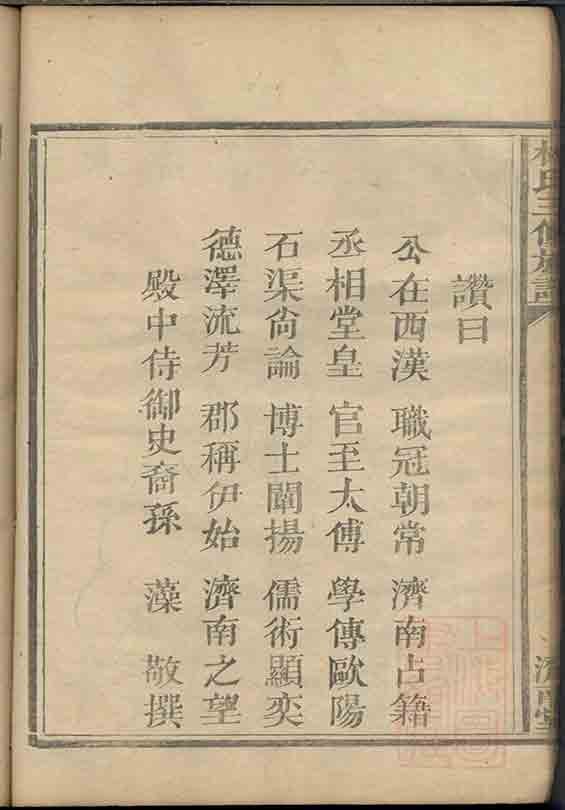 讚曰
公在西漢 職冠朝常 濟南占籍
丞相堂皇 官至太傅 學傳歐陽
石渠尙論 博士闡揚 儒術顯奕
德澤流芳 郡稱伊始 濟南之望
殿中侍御史裔孫 藻 敬撰
林氏三修族譜
濟南堂